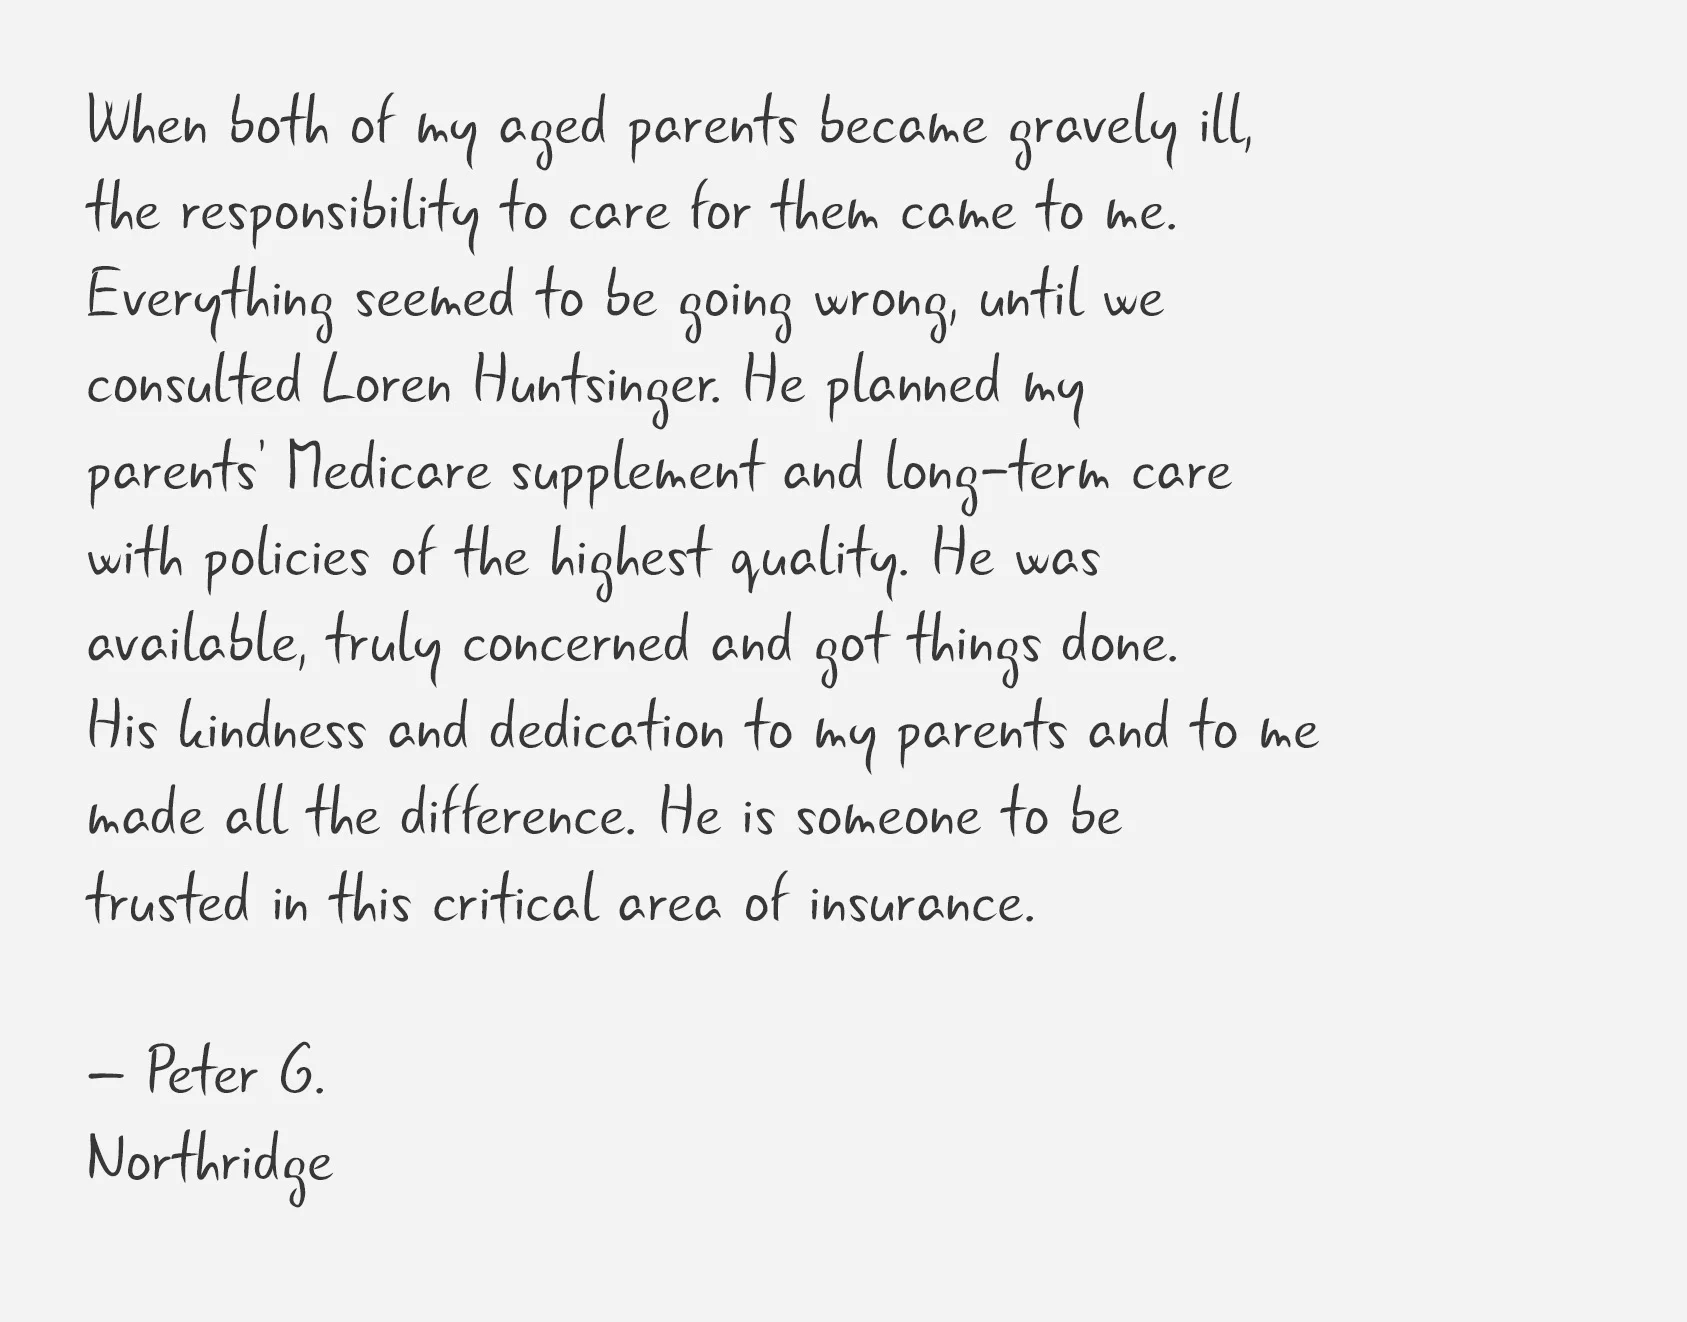 When both of my aged parents became gravely ill,
the responsibility to care for them came to me.
Everything seemed to be going wrong, until we
consulted Loren Huntsinger. He planned my
parents' Medicare supplement and long-term care
with policies of the highest quality. He was
available, truly concerned and got things done.
His kindness and dedication to my parents and to me
made all the difference. He is someone to be
trusted in this critical area of insurance.
– Peter G.
Northridge